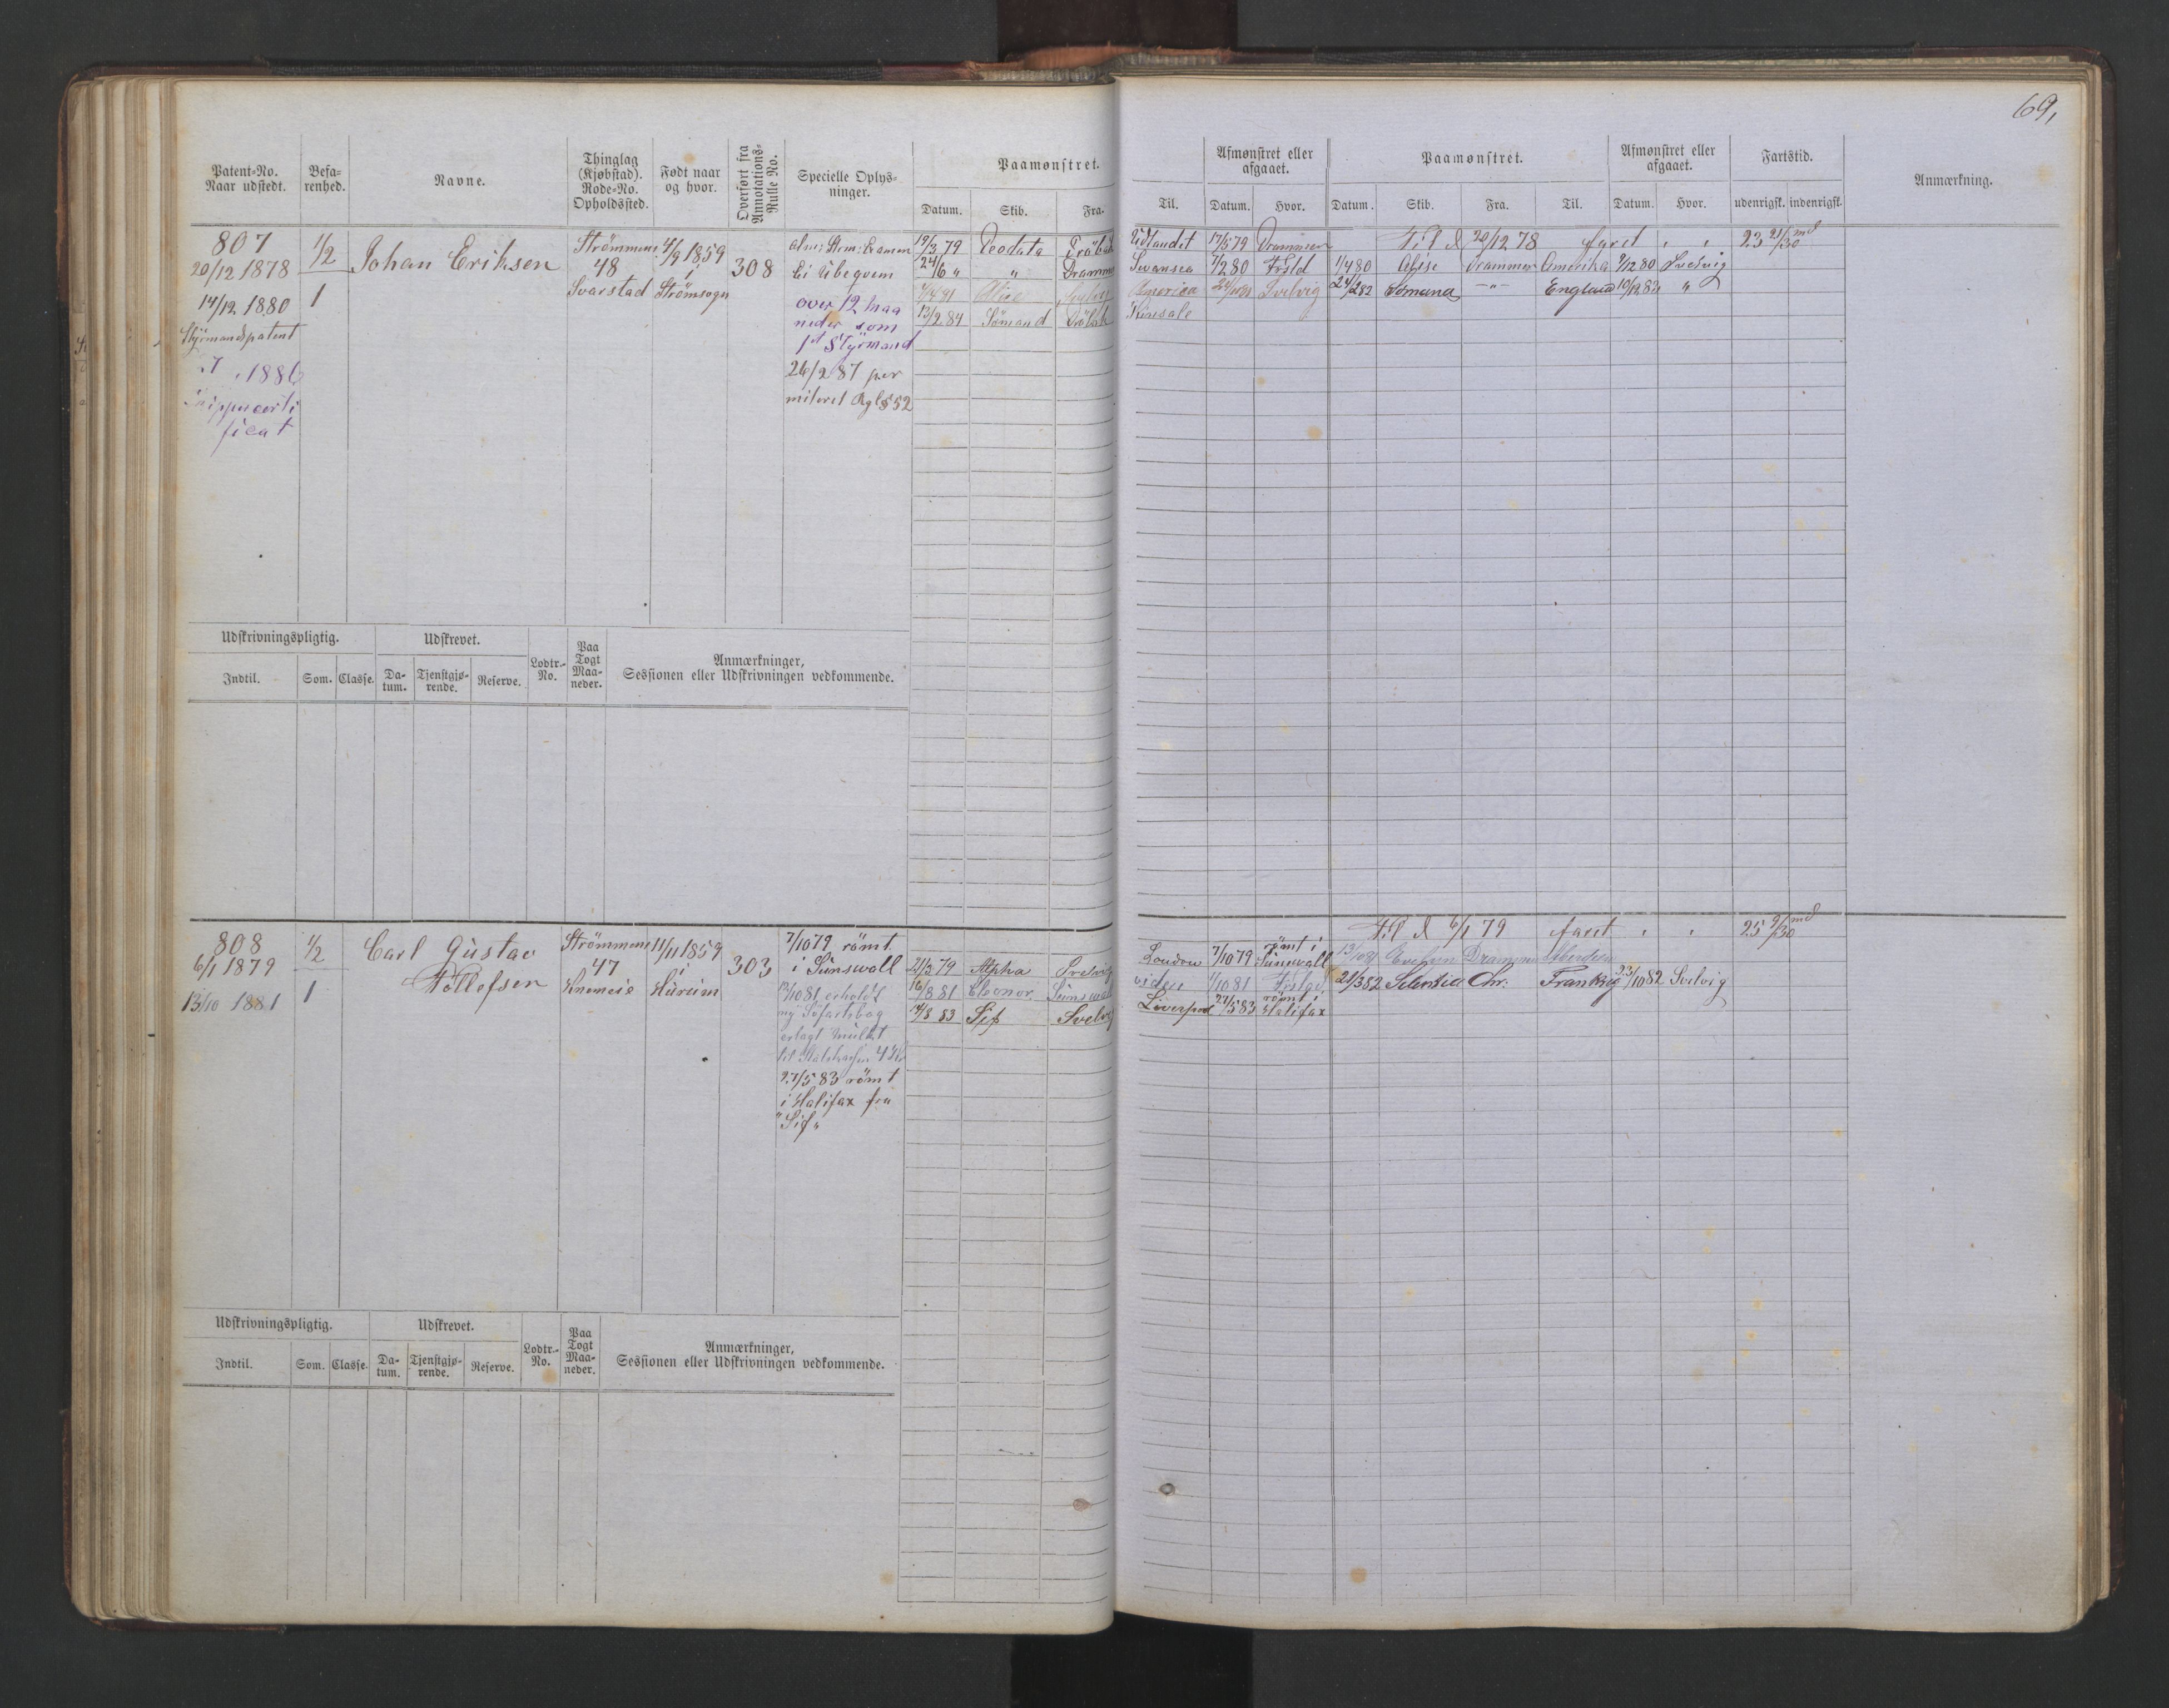 69,
Patent-No.
Naar udstedt.
Befa-
renhed.
Navne.
Thinglag
(Kjøbstad).
Rode-No.
Opholdssted.
Født naar
og hvor.
Overført fra
Annotations-
Rulle No.
Specielle Oplys-
ninger.
Paamønstret.
Datum. Skib. Fra. Til.
Afmønstret eller
afgaaet.
Datum. Hvor.
Paamønstret.
Datum. Skib. Fra. Til.
Afmønstret eller
afgaaet.
Datum. Hvor.
Fartstid.
udenrigsk. indenrigsk.
Anmærkning.
807
20/12 1878
1/2
Johan Eriksen
Strömmens
48
Svarstad
4/9 1859
i
Strömsogn
308
14/12 1880 1
Styrmandspatent
1886
ficat
Ei Ubeqvem
over 12 maa
neder som
1st Styrmand
26/2 87 per
miteret Rgl § 52
19/3 79 Deodata Dröbak Udlandet 17/5 79 Drammen
24/6 " " Dramme Swansea 7/2 80 Frsld
Alice Svelvig America Svelvig
13/2 84 Sömand Dröbak Kinsale
Til d 20/12 78 faret " " 23 21/30 md
1/4 80 Alise Drammen Amerika 9/12 80 Svelvig
24/2 82 Sömand -"- England 10/12 83 "
Udskrivningspligtig.
Udskrevet.
Lodtr.-
No.
Paa
Togt
Maa-
neder.
Anmærkninger,
Sessionen eller Udskrivningen vedkommende.
Indtil. Som. Classe. Da-
tum. Tjenstgjø-
rende. Reserve.
808
6/1 1879
1/2
Carl Gustav
Tollefsen
Strömmens
47
Knemeie
11/11 1859
i
Hurum
303
13/10 1881 1
7/10 79 römt
i Sunswall
13/10 81 erholdt
ny Söfartsbog
erlagt mulkt
til Statskassen 4 Kr
27/5 83 römt
i Halifax fra
"Sif"
21/3 79 Alpha Svelvig London 7/10 79 römt i
Sunswall
16/8 81 Eleonor Sunswall 1/10 81 Frslgd
14/3 83 Sif Svelvig Liverpool 27/5 83 römt i
Halifax
Til d 6/1 79 faret " " 25 9/30 md
13/10 81 Evelyn Drammen Aberdeen
21/3 82 Chr. Frankrig 23/10 82 Svelvig
Udskrivningspligtig.
Udskrevet.
Lodtr.-
No.
Paa
Togt
Maa-
neder.
Anmærkninger,
Sessionen eller Udskrivningen vedkommende.
Indtil. Som. Classe. Da-
tum. Tjenstgjø-
rende. Reserve.